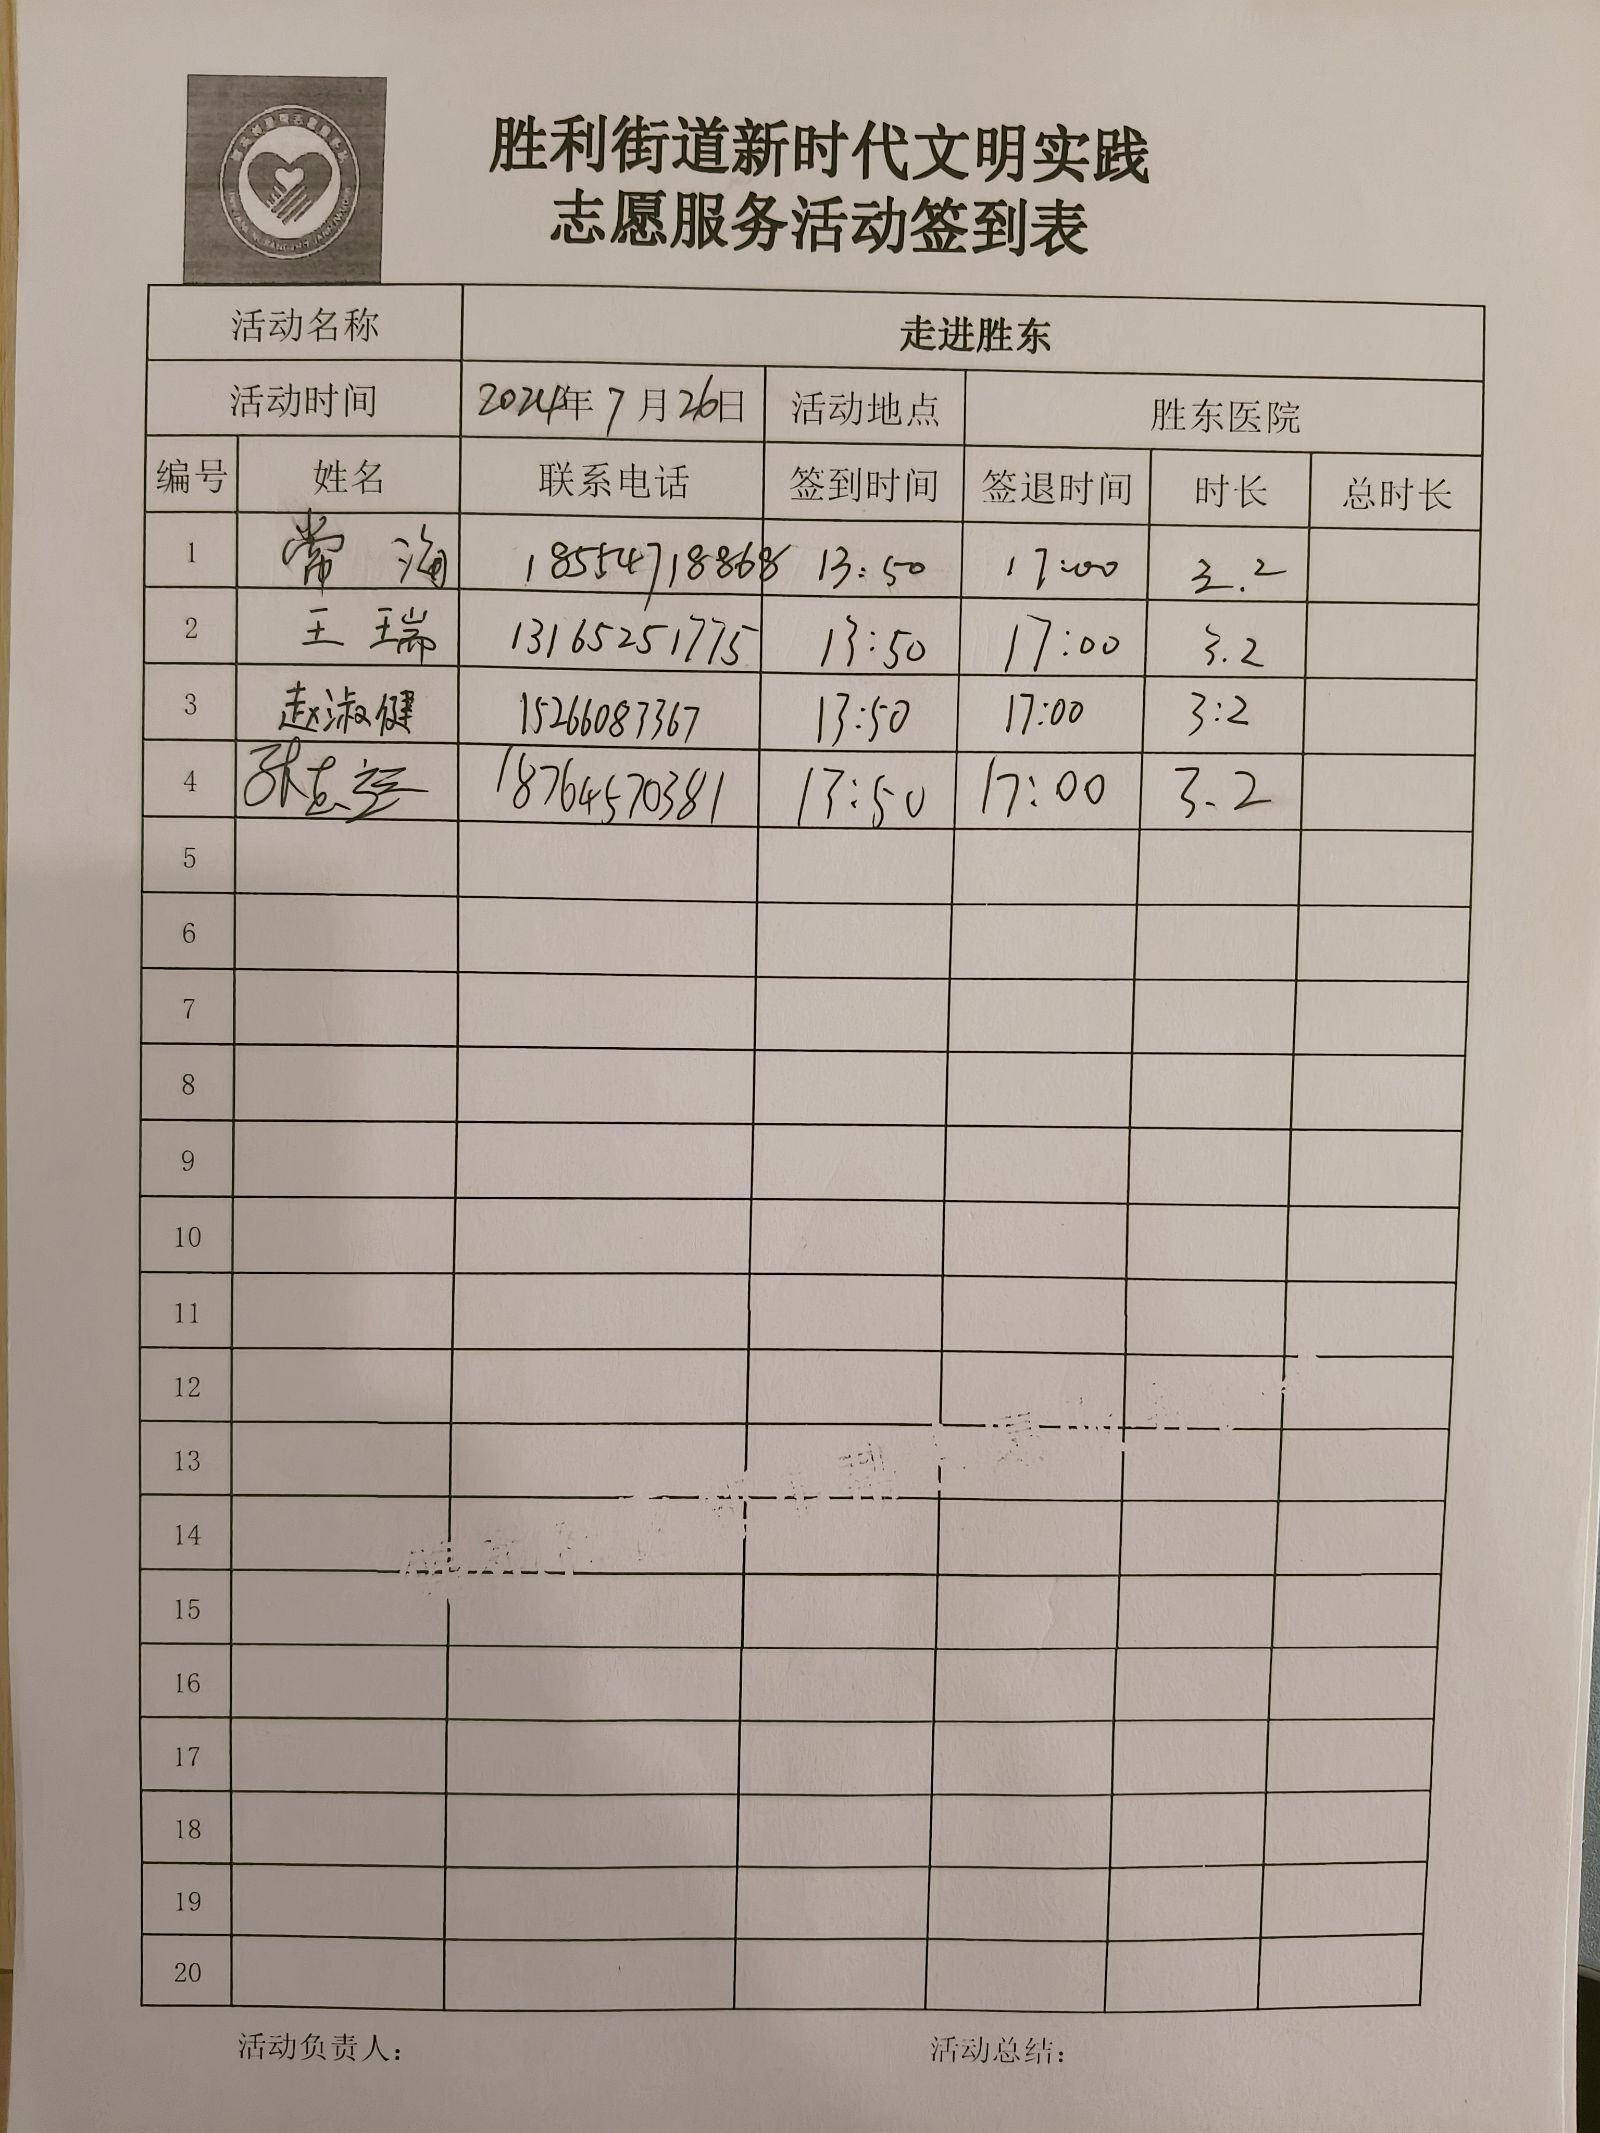 胜利街道新时代文明实践
志愿服务活动签到表
活动名称 走进胜东
活动时间 2024年7月26日 活动地点 胜东医院
编号 姓名 联系电话 签到时间 签退时间 时长 总时长
1 常海 18554718868 13:50 17:00 3.2
2 王瑞 13165251775 13:50 17:00 3.2
3 赵淑健 15266083367 13:50 17:00 3:2
4 张志 18764570381 13:50 17:00 3.2
5
6
7
8
9
10
11
12
13
14
15
16
17
18
19
20
活动负责人: 活动总结: